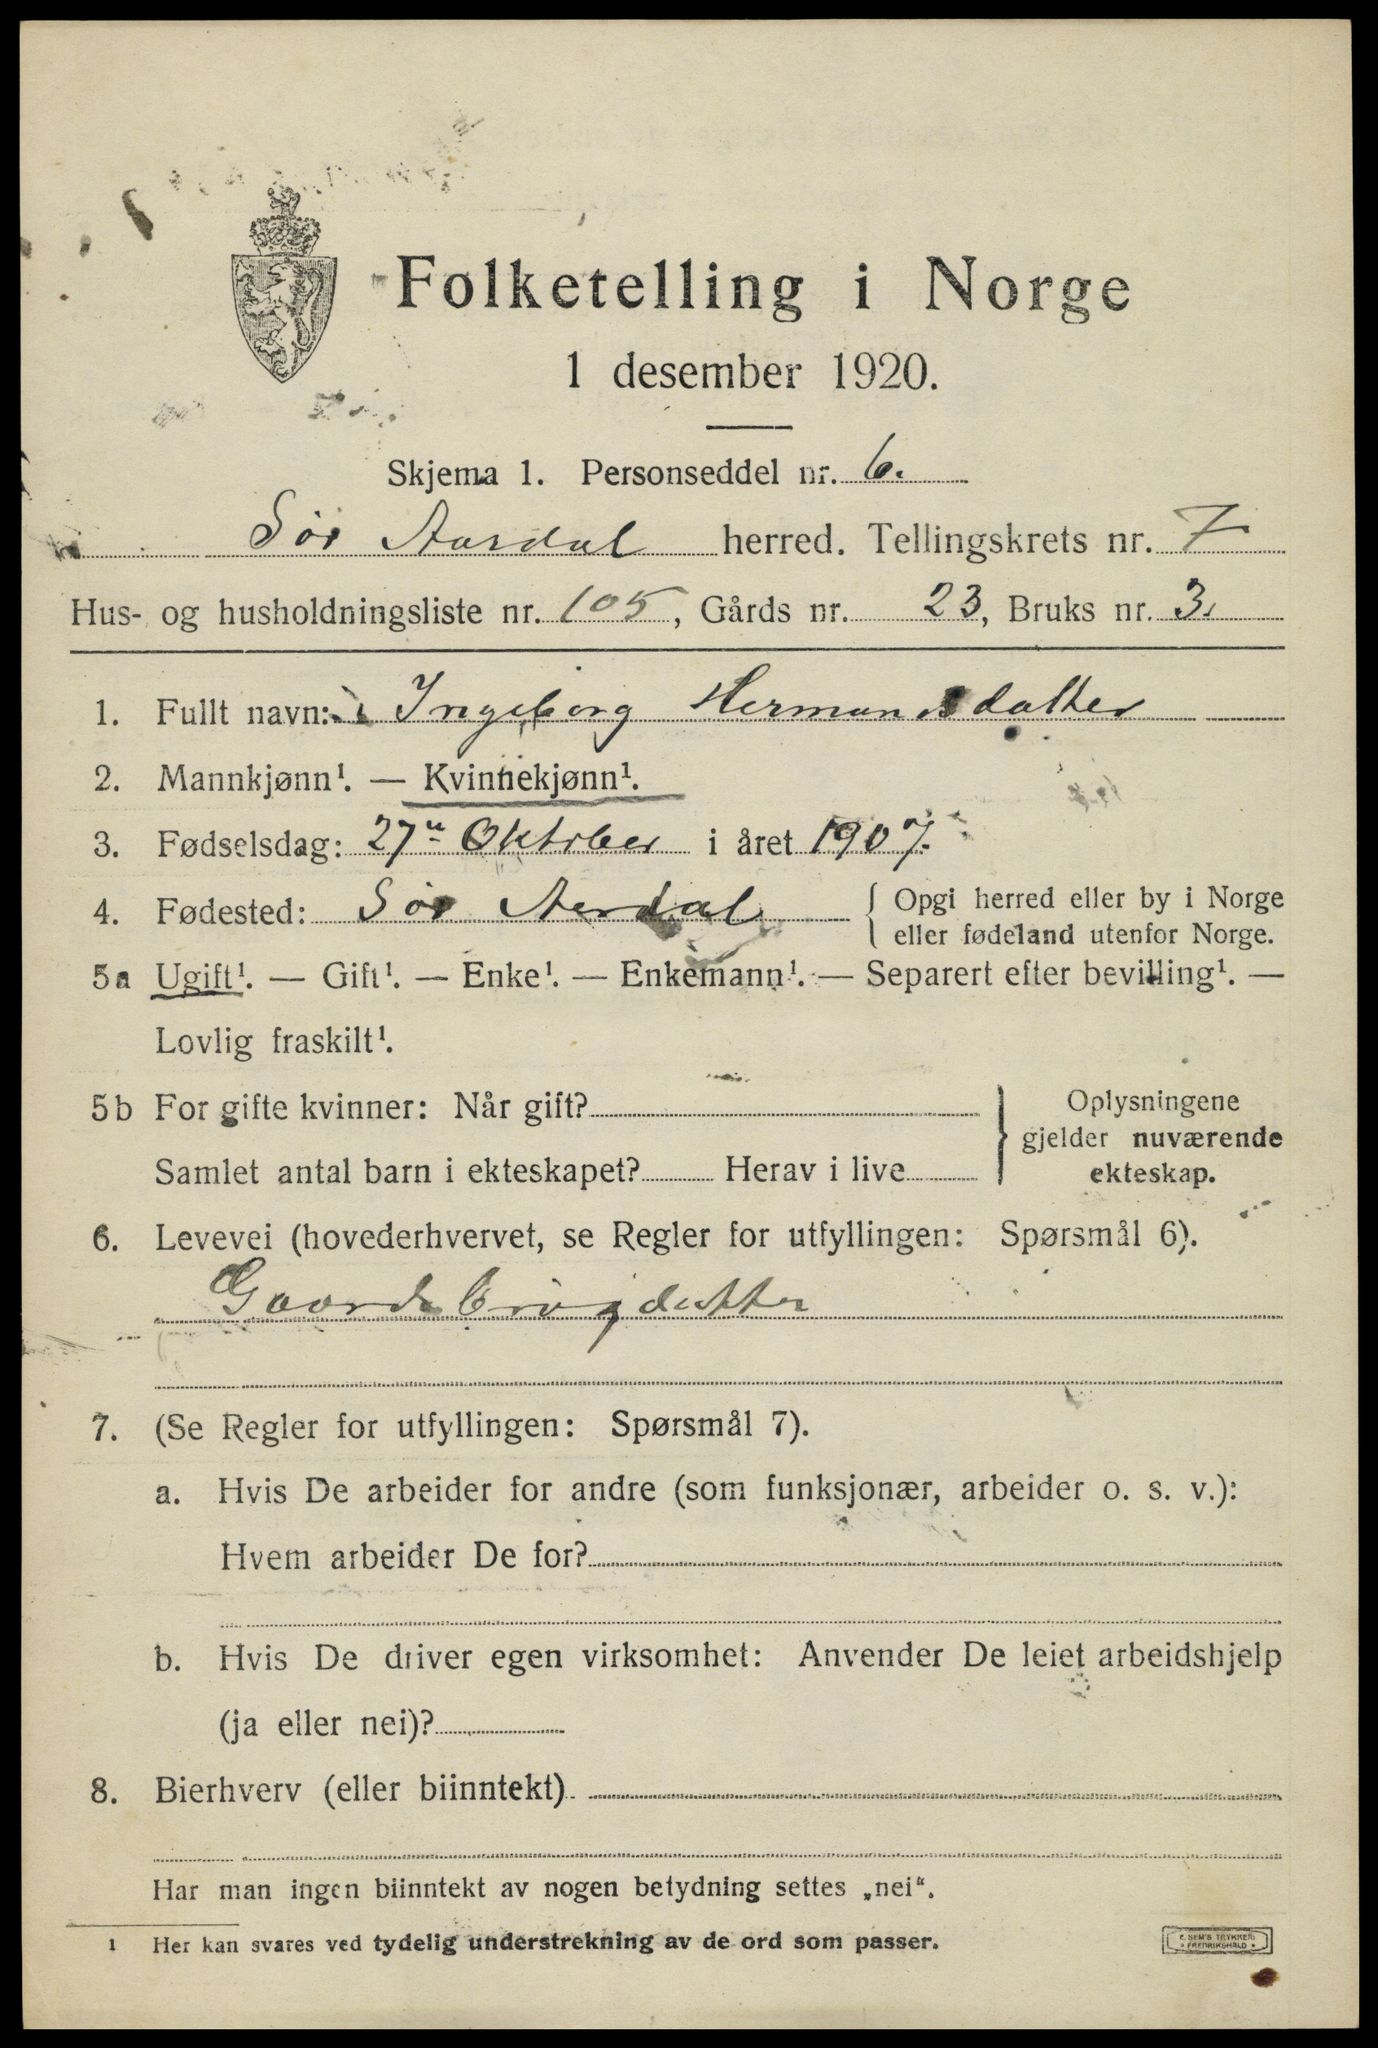 Folketelling i Norge
1 desember 1920.
Skjema 1. Personseddel nr. 6.
Sör Aardal herred. Tellingskrets nr. 7
Hus- og husholdningsliste nr. 105, Gårds nr. 23, Bruks nr. 3.
1. Fullt navn: Ingeborg Hermansdatter
2. Mannkjønn¹. — Kvinnekjønn¹.
3. Fødselsdag: 27de Oktober i året 1907.
4. Fødested: Sör Aardal { Opgi herred eller by i Norge
eller fødeland utenfor Norge.
5a Ugift¹. — Gift¹. — Enke¹. — Enkemann¹. — Separert efter bevilling¹. —
Lovlig fraskilt¹.
5b For gifte kvinner: Når gift?
Samlet antal barn i ekteskapet? Herav i live
} Oplysningene
gjelder nuværende
ekteskap.
6. Levevei (hovederhvervet, se Regler for utfyllingen: Spørsmål 6).
Gaardbrugdatter
7. (Se Regler for utfyllingen: Spørsmål 7).
a. Hvis De arbeider for andre (som funksjonær, arbeider o. s. v.):
Hvem arbeider De for?
b. Hvis De driver egen virksomhet: Anvender De leiet arbeidshjelp
(ja eller nei)?
8. Bierhverv (eller biinntekt)
Har man ingen biinntekt av nogen betydning settes „nei“.
1 Her kan svares ved tydelig understrekning av de ord som passer.
E. SEM'S TRYKKERI
• FREDRIKSHALD •